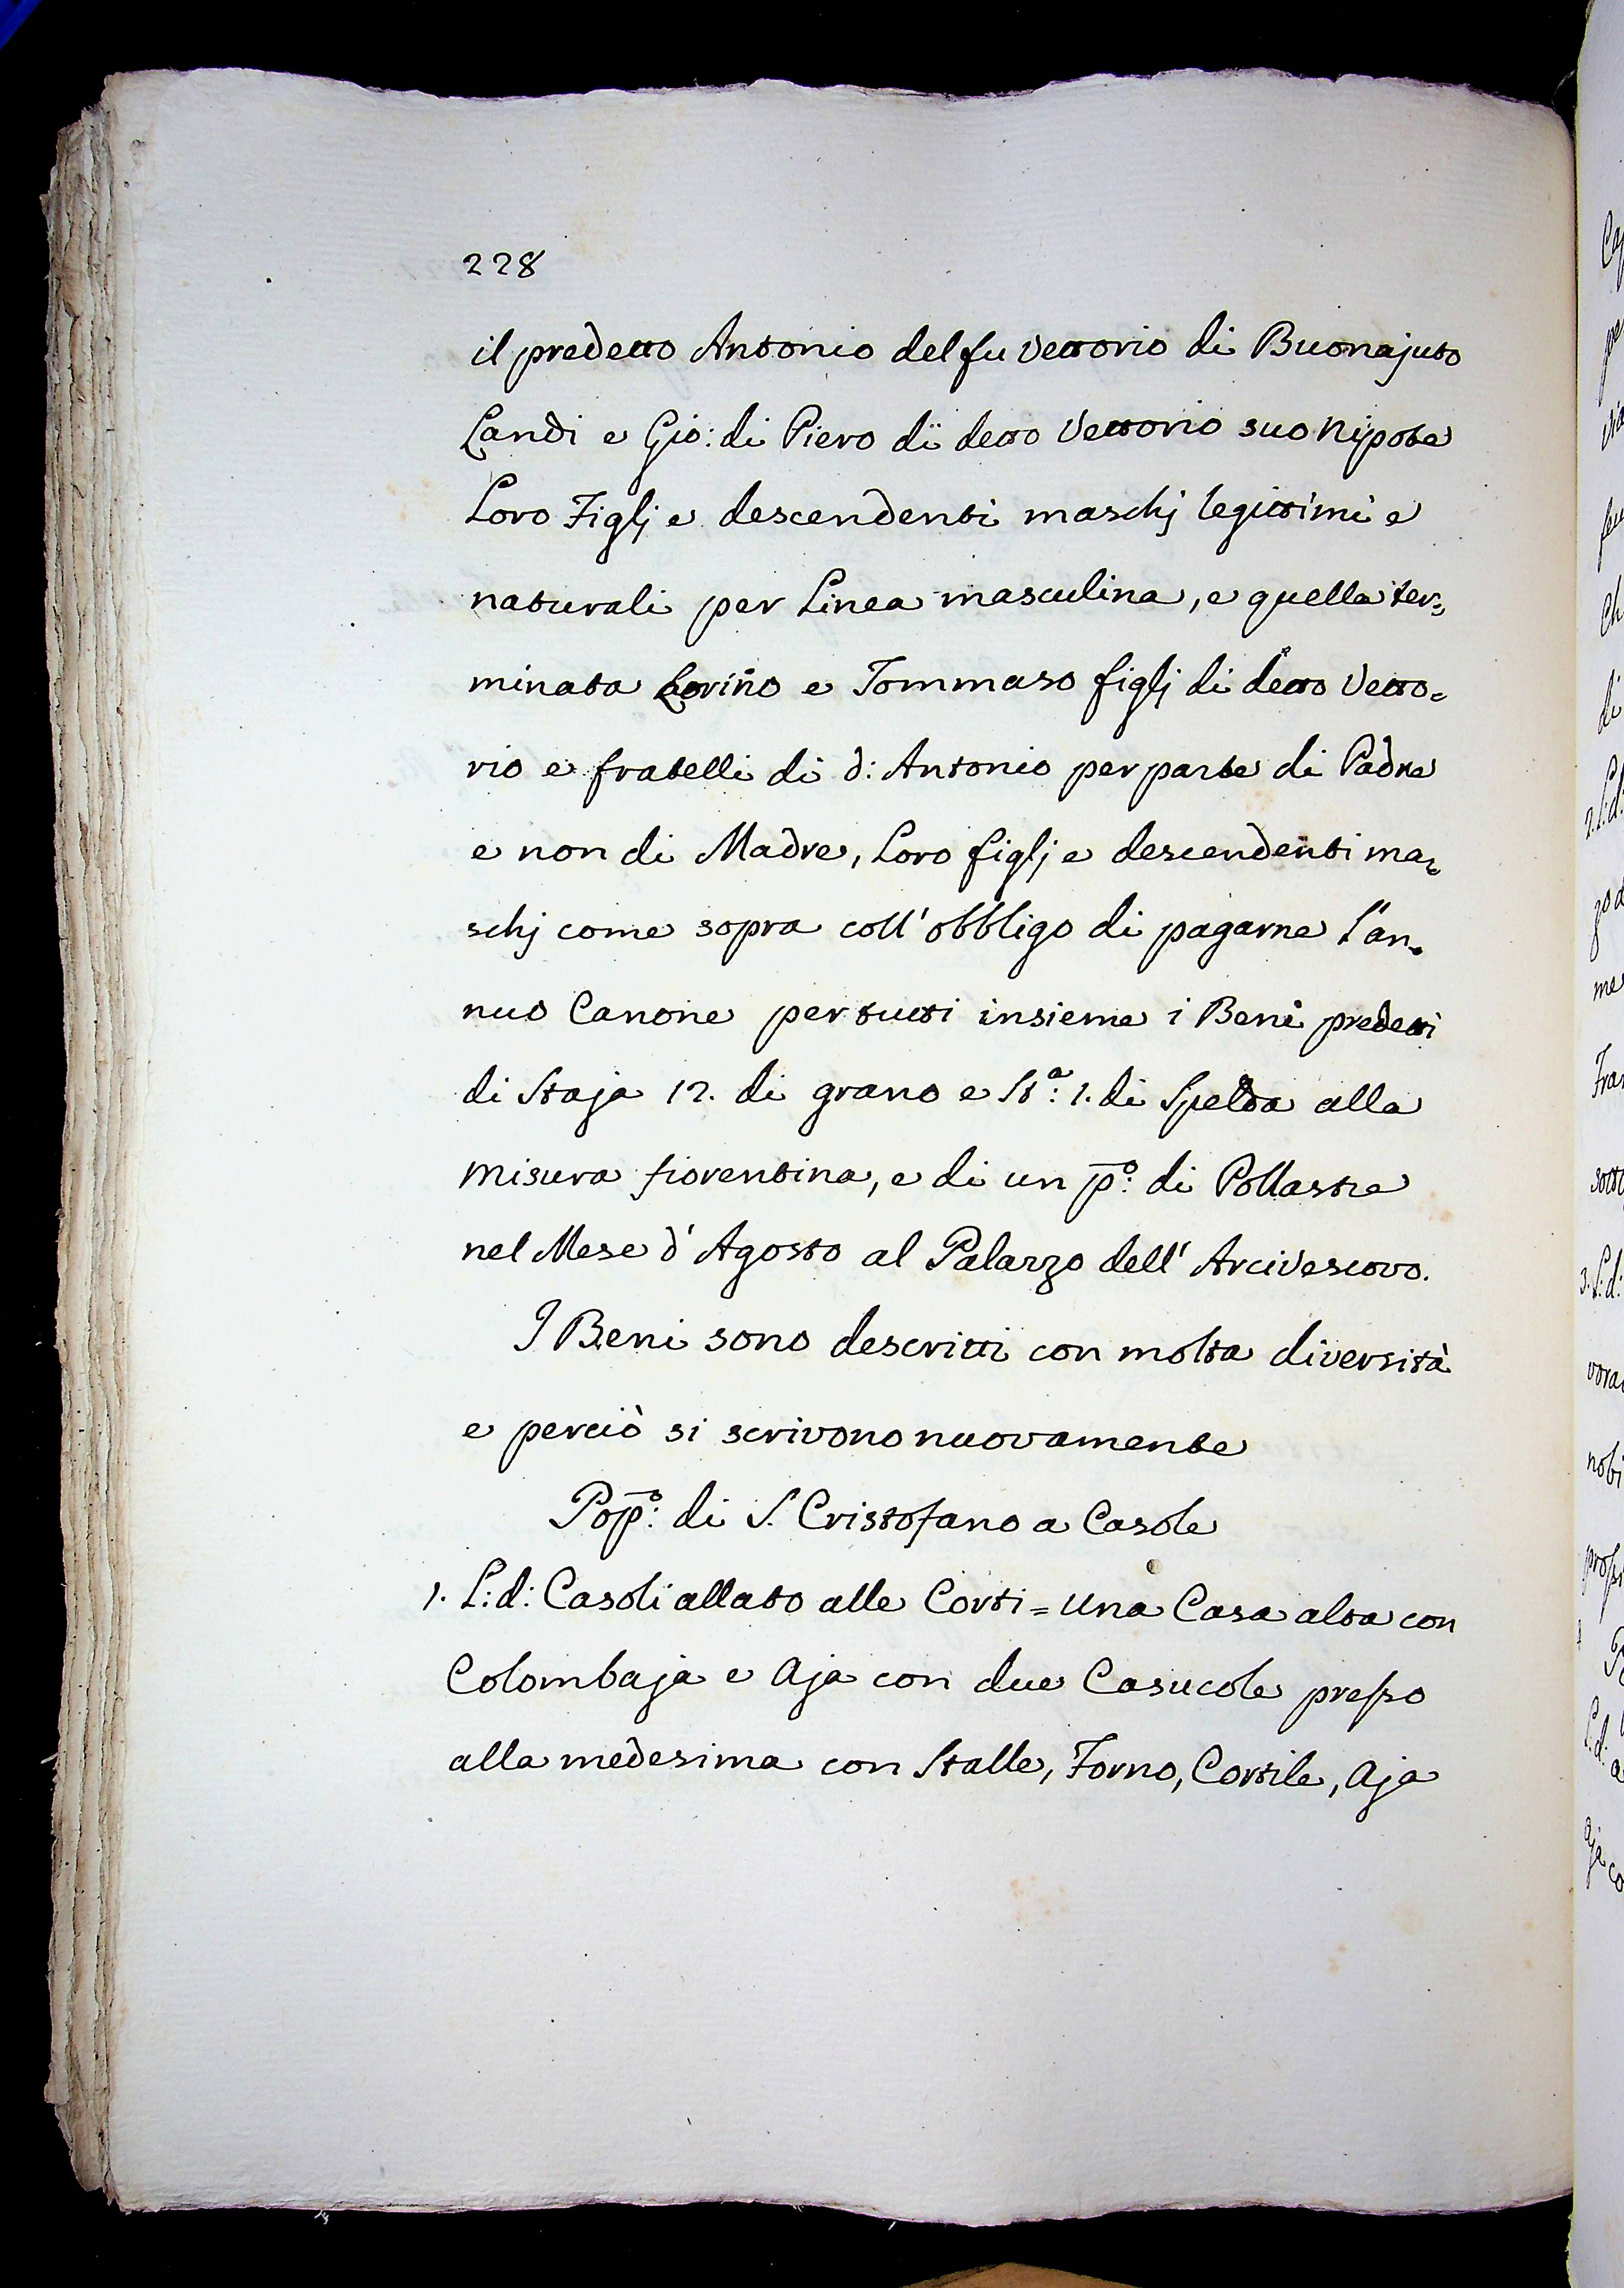 228
il predetto Antonio del fu Vettorio di Buonajuto
Landi e Gio: di Piero di detto Vettorio suo Nipote
Loro Figlj e descendenti maschj legittimi e
naturali per Linea masculina, e quella ter=
minata e Tommaso figlj di detto Vetto=
rio e fratelli di d: Antonio per parte di Padre
e non di Madre, Loro figlj e descendenti ma=
schj come sopra coll' obbligo di pagarne l'an=
nuo Canone per tutti insieme i Beni predetti
di Staja 12. di grano e St.ª: 1. di Spelda alla
misura fiorentina, e di un p̄º: di Pollastre
nel Mese d' Agosto al Palazzo dell' Arcivescovo.
I Beni sono descritti con molta diversità
e perciò si scrivono nuovamente
Pop̄º: di S. Cristofano a Casole
1. L: d: Casoli allato alle Corti = una Casa alta con
Colombaja e Aja con due Casucole presso
alla medesima con Stalle, Forno, Cortile, Aja